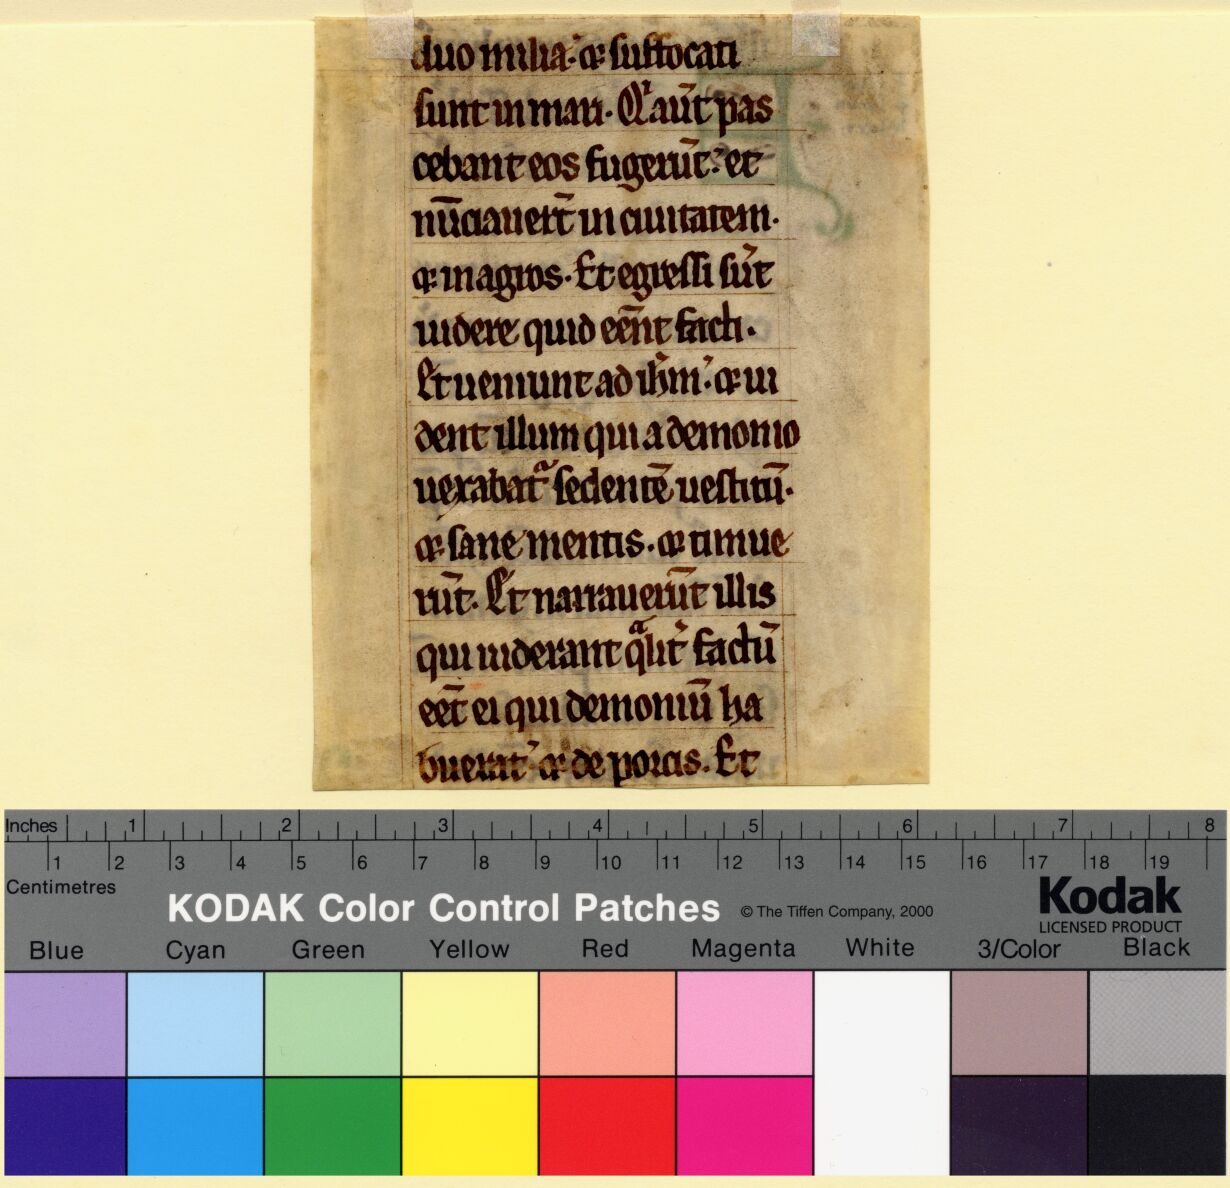 duo milia· ⁊ suffocati
sunt in mari· Qͥ aūt pas
cebant eos fugerūt· et
nūciauert̄ in ciuitatem·
⁊ in agros· Et egressi sūt
uidere quid eēnt facti·
Et ueniunt ad ihm̄· ⁊ ui
dent illum qui a demonio
uexabatᷓ sedentē uestitū·
⁊ sane mentis· ⁊ timue
rūt· Et narrauerūt illis
qui uiderant qᷓlit̄ factū
eēt ei qui demoniū ha
buerat· ⁊ de porcis· Et
Inches 1 2 3 4 5 6 7 8
1 2 3 4 5 6 7 8 9 10 11 12 13 14 15 16 17 18 19
Centimetres
KODAK Color Control Patches © The Tiffen Company, 2000 Kodak
LICENSED PRODUCT
Blue Cyan Green Yellow Red Magenta White 3/Color Black